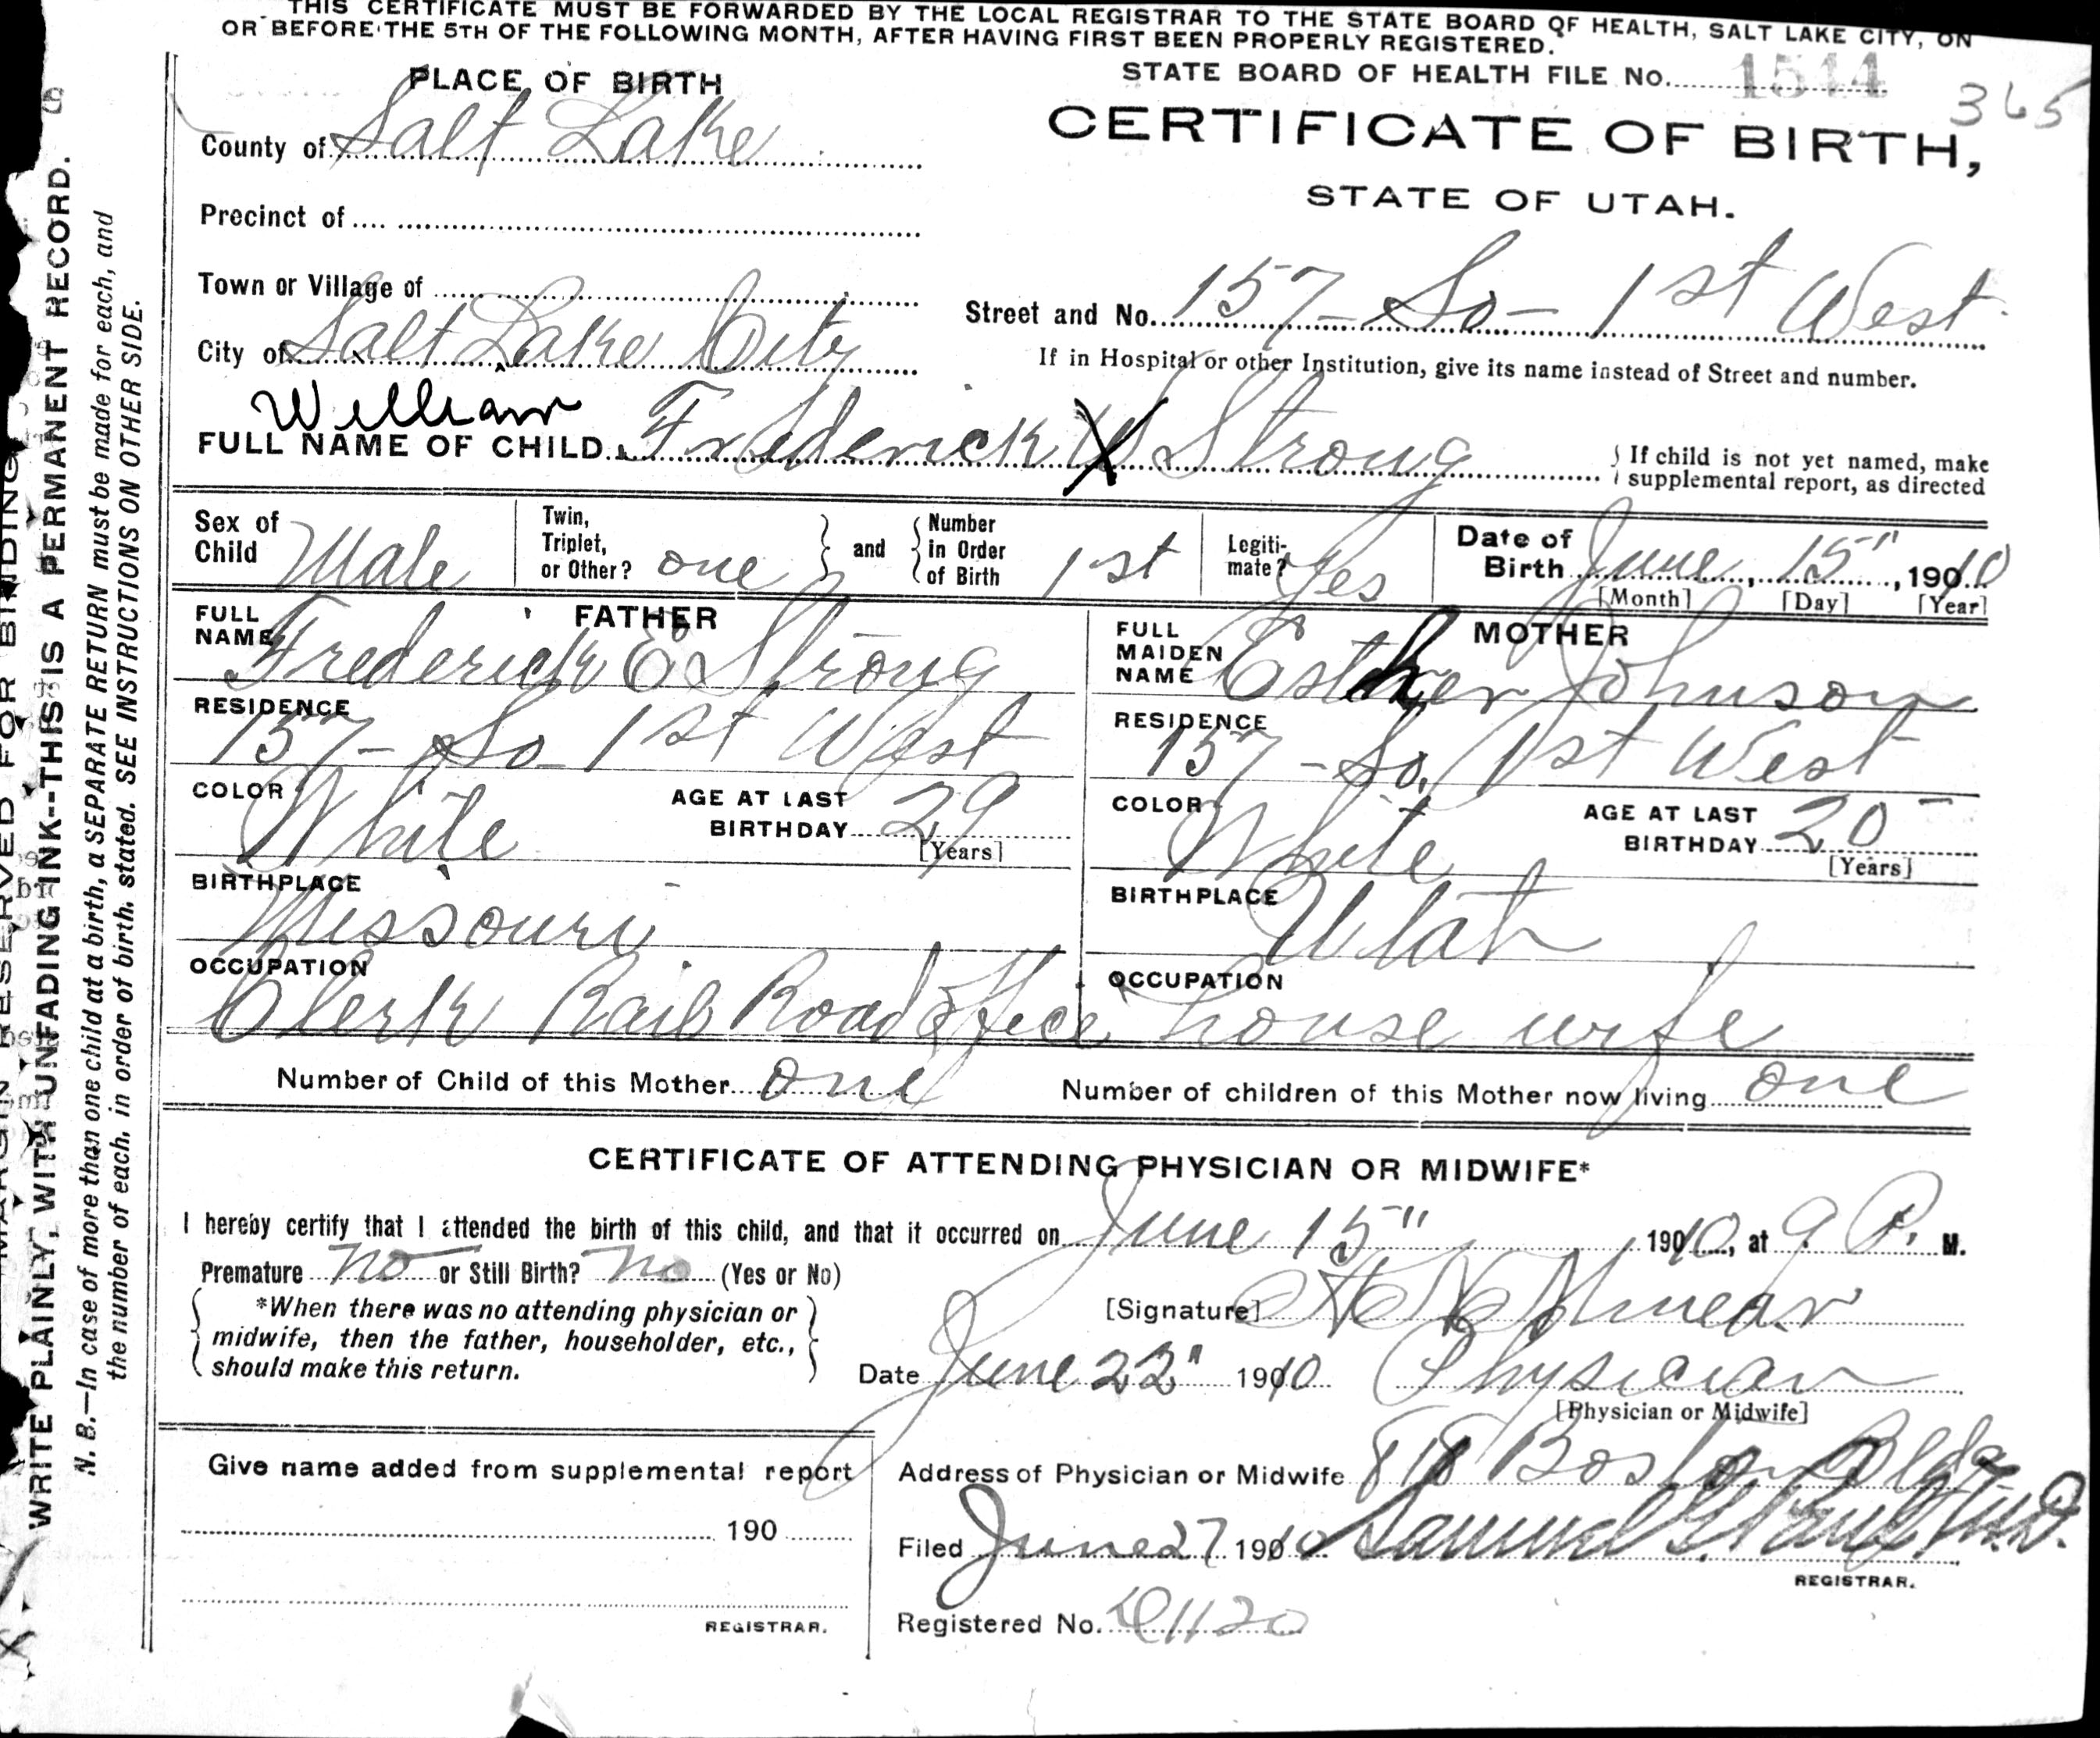 THIS CERTIFICATE MUST BE FORWARDED BY THE LOCAL REGISTRAR TO THE STATE BOARD OF HEALTH, SALT LAKE CITY, ON
OR BEFORE THE 5TH OF THE FOLLOWING MONTH, AFTER HAVING FIRST BEEN PROPERLY REGISTERED.
PLACE OF BIRTH
STATE BOARD OF HEALTH FILE No. 1514
365
CERTIFICATE OF BIRTH,
STATE OF UTAH.
County of Salt Lake
Precinct of
Town or Village of
Street and No. 157 - So - 1st West
City of Salt Lake City
If in Hospital or other Institution, give its name instead of Street and number.
William
FULL NAME OF CHILD Frederick W Strong
If child is not yet named, make
supplemental report, as directed
Sex of Child Male
Twin, Triplet, or Other? one and Number in Order of Birth 1st
Legitimate? Yes
Date of Birth June, 15", 1910
[Month] [Day] [Year]
FATHER
FULL NAME Frederick E Strong
RESIDENCE
157 - So 1st West
COLOR White
AGE AT LAST BIRTHDAY 29
[Years]
BIRTHPLACE
Missouri
OCCUPATION
Clerk Rail Road Office
MOTHER
FULL MAIDEN NAME Esther Johnson
RESIDENCE
157 - So. 1st West
COLOR White
AGE AT LAST BIRTHDAY 20
[Years]
BIRTHPLACE
Utah
OCCUPATION
house wife
Number of Child of this Mother one
Number of children of this Mother now living one
CERTIFICATE OF ATTENDING PHYSICIAN OR MIDWIFE*
I hereby certify that I attended the birth of this child, and that it occurred on June 15" 1910, at 9 P. M.
Premature no or Still Birth? no (Yes or No)
*When there was no attending physician or
midwife, then the father, householder, etc.,
should make this return.
[Signature]
Date June 22" 1910
Physician
[Physician or Midwife]
Address of Physician or Midwife 818 Boston Bldg
Give name added from supplemental report
190
REGISTRAR.
Filed June 27 1910 Samuel G. Paul, M.D.
REGISTRAR.
Registered No. 1120
WRITE PLAINLY, WITH UNFADING INK--THIS IS A PERMANENT RECORD.
N. B.—In case of more than one child at a birth, a SEPARATE RETURN must be made for each, and
the number of each, in order of birth, stated. SEE INSTRUCTIONS ON OTHER SIDE.
MARGIN RESERVED FOR BINDING